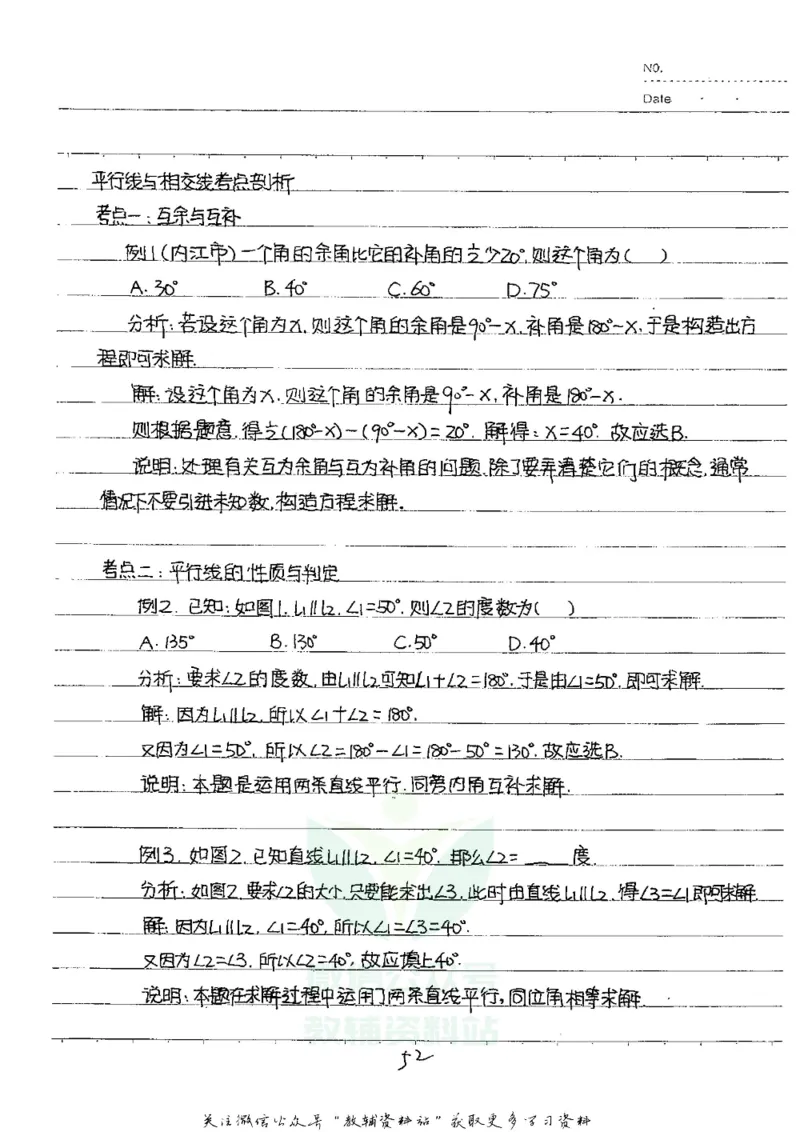 NO.
Date
平行线与相交线考点剖析
考点一:互余与互补
例1(内江市)一个角的余角比它的补角的½少20°,则这个角为( )
A.30° B.40° C.60° D.75°
分析:若设这个角为x,则这个角的余角是90°-x,补角是180°-x,于是构造出方
程即可求解.
解:设这个角为x,则这个角的余角是90°-x,补角是180°-x.
则根据题意,得½(180°-x)-(90°-x)=20°.解得:x=40°.故应选B.
说明:处理有关互为余角与互为补角的问题,除了要弄清楚它们的概念,通常
情况下不要引进未知数,构造方程求解.
考点二:平行线的性质与判定
例2.已知:如图1,l1∥l2,∠1=50°,则∠2的度数为( )
A.135° B.130° C.50° D.40°
分析:要求∠2的度数,由l1∥l2可知∠1+∠2=180°,于是由∠1=50°,即可求解.
解:因为l1∥l2,所以∠1+∠2=180°,
又因为∠1=50°,所以∠2=180°-∠1=180°-50°=130°.故应选B.
说明:本题是运用两条直线平行,同旁内角互补求解.
例3.如图2,已知直线l1∥l2,∠1=40°,那么∠2=____度.
分析:如图2,要求∠2的大小,只要能求出∠3,此时由直线l1∥l2,得∠3=∠1即可求解
解:因为l1∥l2,∠1=40°,所以∠1=∠3=40°.
又因为∠2=∠3,所以∠2=40°,故应填上40°.
说明:本题在求解过程中运用了两条直线平行,同位角相等求解.
微信公众号
教辅资料站
52
关注微信公众号"教辅资料站"获取更多学习资料